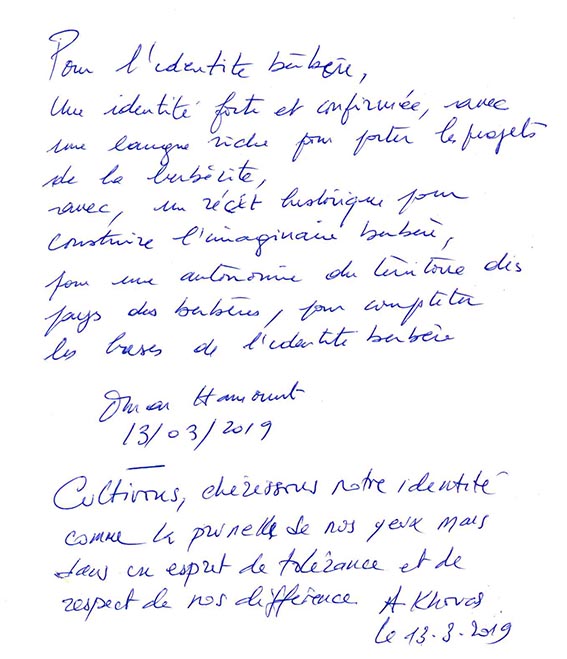 Pour l'identite berbère,
Une identité forte et confirmée, avec
une langue riche pour porter les projets
de la berbérité,
avec, un récit historique pour
construire l'imaginaire berbère,
pour une autonomie du térritoire des
pays des berbères, pour completer
les bases de l'identite berbère
Omar Hamourit
13/03/2019
Cultivons, chérissons notre identité
comme la prunelle de nos yeux mais
dans un esprit de tolérance et de
respect de nos différence. A Khovas
le 13-3-2019